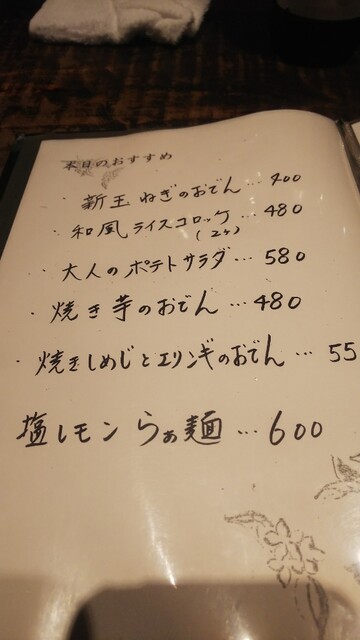 本日のおすすめ
・新玉ねぎのおでん…400
・和風ライスコロッケ…480
(2ケ)
・大人のポテトサラダ…580
・焼き芋のおでん…480
・焼きしめじとエリンギのおでん…55
塩レモンらぁ麺…600